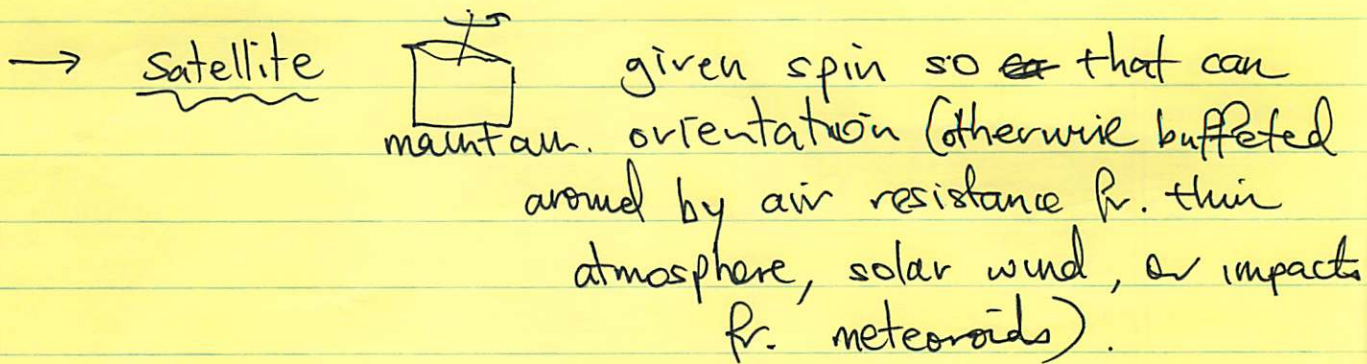 → satellite given spin so that can
maintain. orientation (otherwise buffeted
around by air resistance fr. thin
atmosphere, solar wind, or impacts
fr. meteoroids).